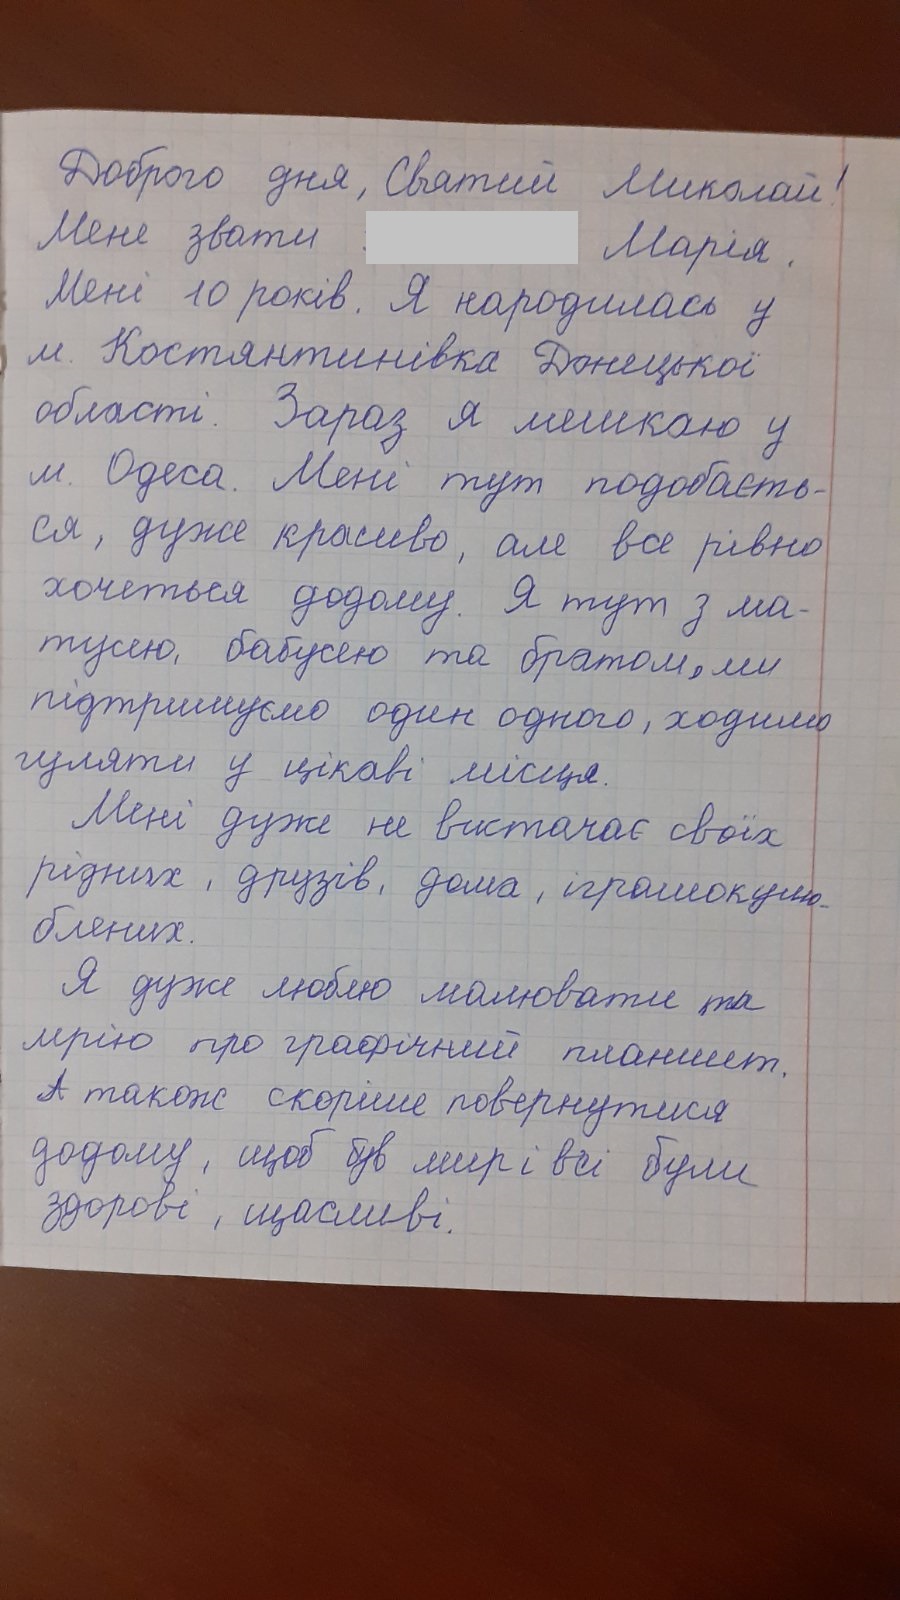 Доброго дня, Святий Миколай!
Мене звати Марія.
Мені 10 років. Я народилась у
м. Костянтинівка Донецької
області. Зараз я мешкаю у
м. Одеса. Мені тут подобаєть-
ся, дуже красиво, але все рівно
хочеться додому. Я тут з ма-
тусею, бабусею та братом, ми
підтримуємо один одного, ходимо
гуляти у цікаві місця.
Мені дуже не вистачає своїх
рідних, друзів, дома, іграшок улю-
блених.
Я дуже люблю малювати та
мрію про графічний планшет.
А також скоріше повернутися
додому, щоб був мир і всі були
здорові, щасливі.